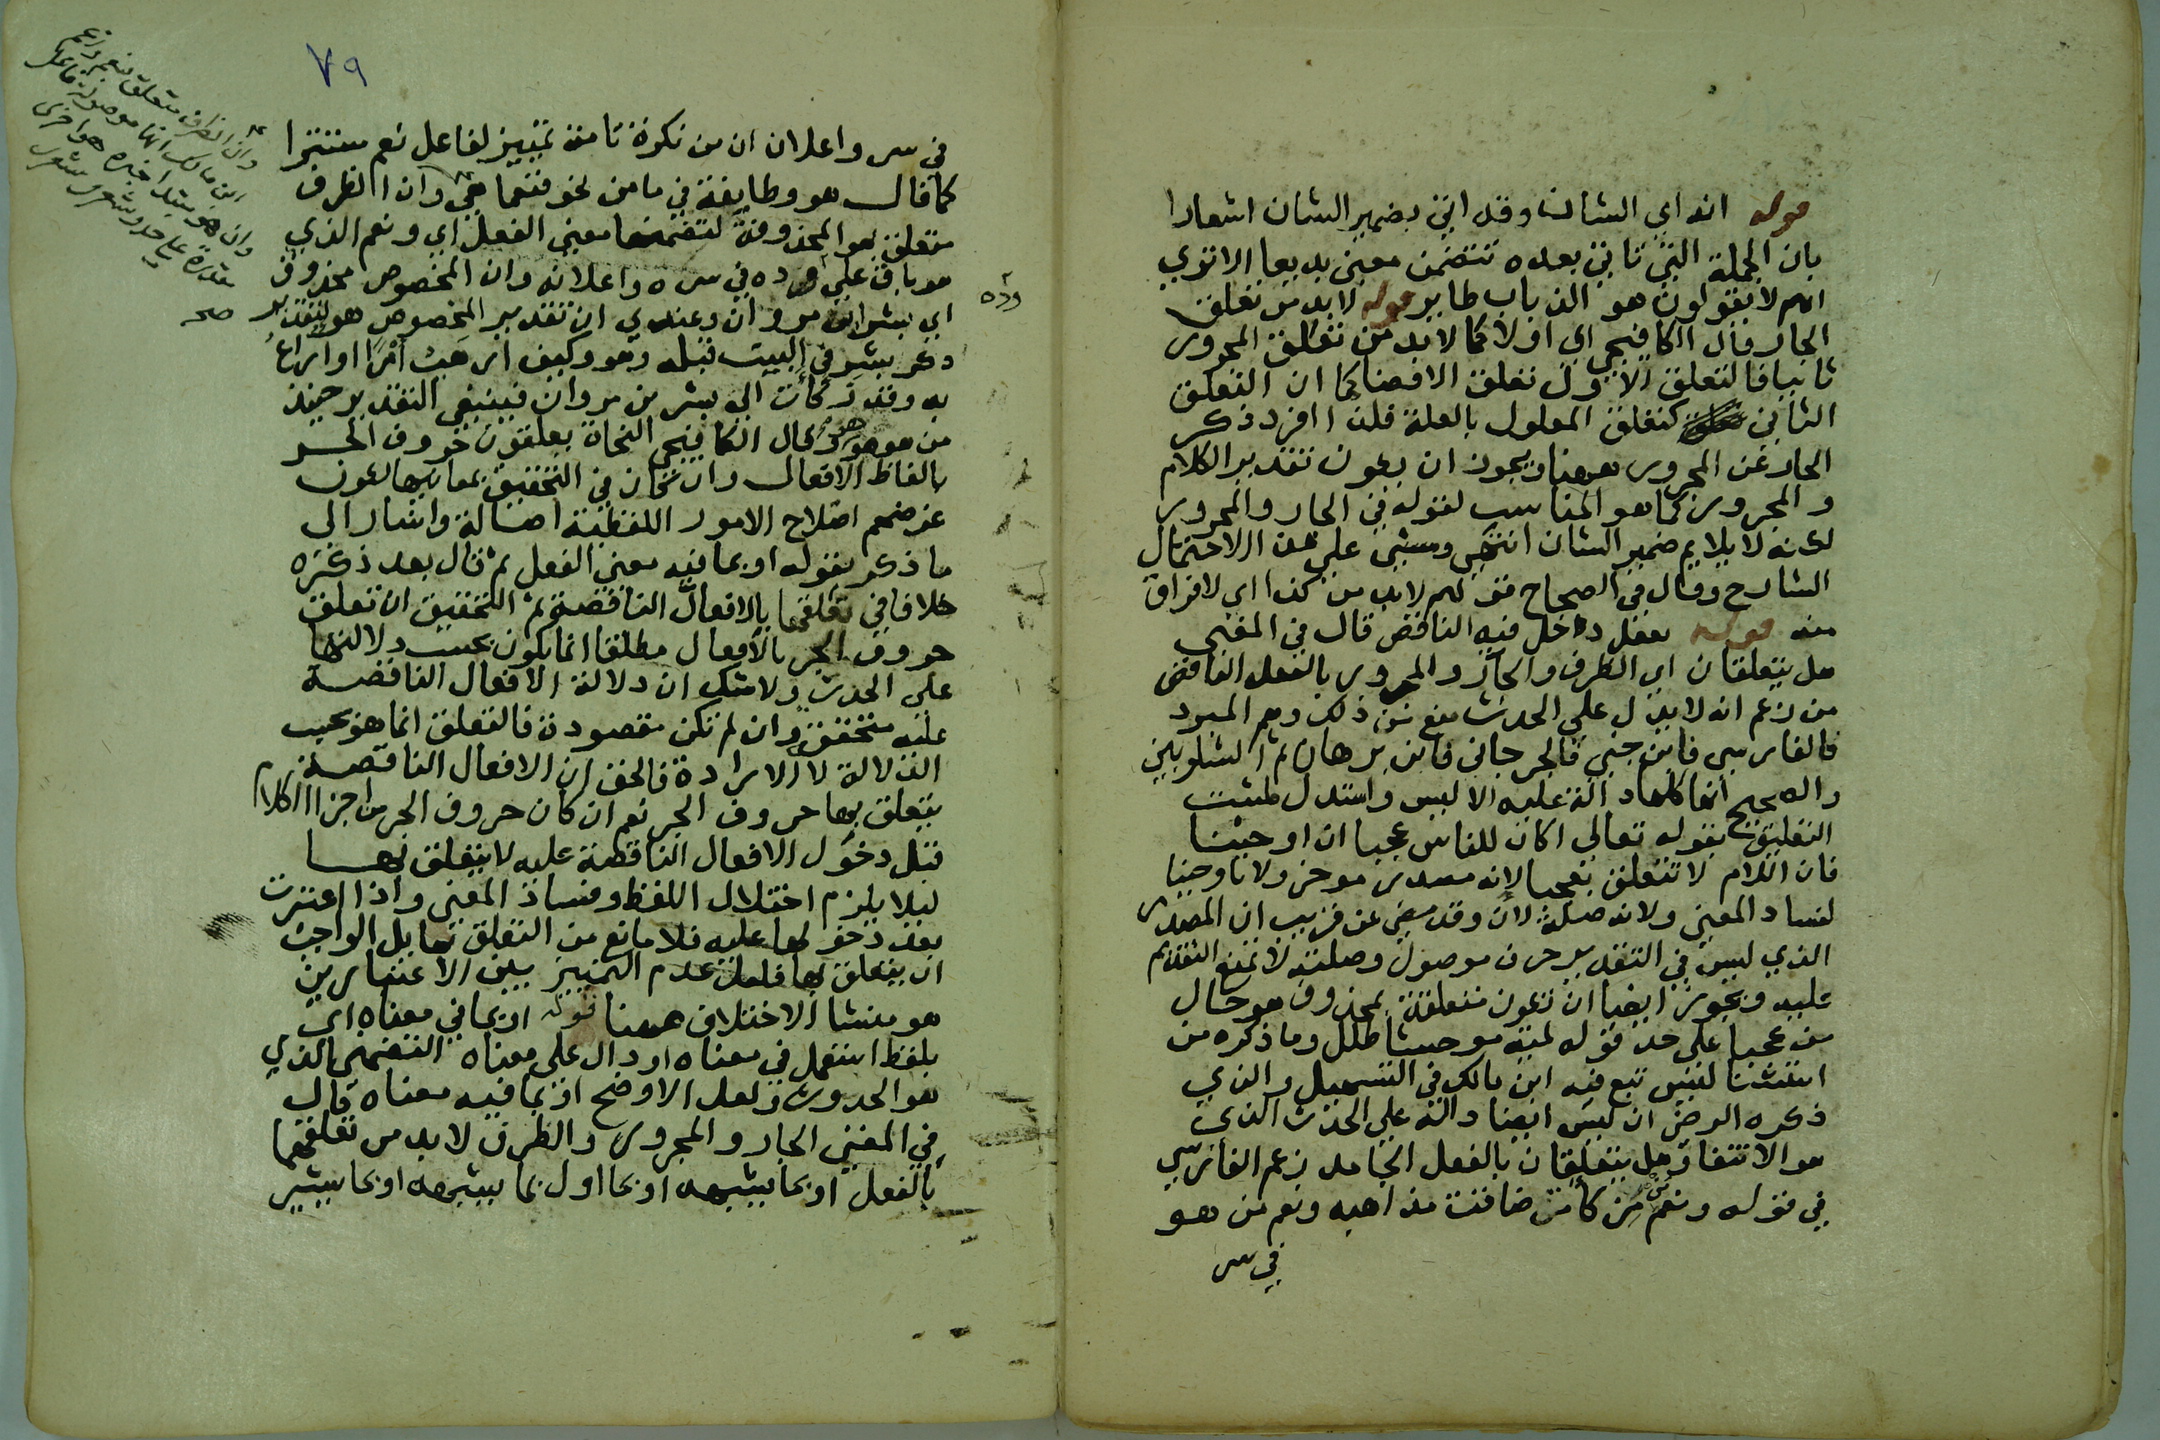 قوله انه اي الشان وقد اتى بضمير الشان اشعارا
بان الجملة التي تاتي بعده تتضمن معنى بديعا الا تري
انهم لا يقولون هو الذباب طاير قوله لا بد من تعلق
الجار قال الكافيجي اي اولا كما لا بد من تعلق المجرور
ثانيا فالتعلق الاول تعلق الافضا كما ان التعلق
الثاني كتعلق المعلول بالعلة فلذا افرد ذكر
الجار عن المجرور ههنا ويجوز ان يكون تقدير الكلام
والمجرور كما هو المناسب لقوله في الجار والمجرور
لكنه لا يلايم ضمير الشان انتهى ومشى على هذا الاحتمال
الشارح وقال في الصحاح قولهم لا بد من كذا اي لا فراق
منه قوله بفعل داخل فيه الناقص قال في المغني
هل يتعلقان اي الظرف والجار والمجرور بالفعل الناقص
من زعم انه لا يدل على الحدث منع من ذلك وهم المبرد
فالفارسي فابن جني فالجرجاني فابن برهان ثم الشلوبين
والصحيح انها كلها دالة عليه الا ليس واستدل لمثبت
التعليق بقوله تعالى اكان للناس عجبا ان اوحينا
فان اللام لا تتعلق بعجبا لانه مصدر موخر ولا باوحينا
لفساد المعنى ولانه صلة لان وقد مضى عن قريب ان المصدر
الذي ليس في التقدير حرف موصول وصلته لا يمنع التقديم
عليه ويجوز ايضا ان تكون متعلقة بمحذوف هو حال
من عجبا على حد قوله لمية موحشا طلل وما ذكره من
استثنا ليس تبع فيه ابن مالك في التسهيل والذي
ذكره الرضي ان ليس ايضا دالة على الحدث الذي
هو الانتفا وهل يتعلقان بالفعل الجامد زعم الفارسي
في قوله ونعم من كا من ضاقت مذاهبه ونعم من هو
في سر
٧٩
في سر واعلان ان من نكرة تامة تمييز لفاعل نعم مستترا
كما قال هو وطايفة في ما من نحو فنعما هي وان الظرف
متعلق بهو المحذوفة لتضمنها معنى الفعل اي ونعم الذي
هو باق على وده في سره واعلانه وان المخصوص محذوف
اي بشر ابن مروان وعندي ان تقدير المخصوص هو لتقدير
ذكر بشر في البيت قبله وهو وكيف ارهب امرا او اراع
به وقد زكأت الى بشر بن مروان فينبغي التقدير حينئذ
من هو هو هو قال الكافيجي النحاة يعلقون حروف الجر
بالفاظ الافعال وان كان في التحقيق بمعانيها لكون
غرضهم اصلاح الامور اللفظية اصالة واشار الى
ما ذكر بقوله او بما فيه معنى الفعل ثم قال بعد ذكره
خلافا في تعلقها بالافعال الناقصة ثم التحقيق ان تعلق
حروف الجر بالافعال مطلقا انما يكون بحسب دلالتها
على الحدث ولا شك ان دلالة الافعال الناقصة
عليه متحققة وان لم تكن مقصودة فالتعلق انما هو بحسب
الدلالة لا الارادة فالحق ان الافعال الناقصة
يتعلق بها حروف الجر نعم ان كان حروف الجر من اجزا الكلام
قبل دخول الافعال الناقصة عليه لا يتعلق بها
ليلا يلزم اختلال اللفظ وفساد المعنى واذا اعتبرت
بعد دخولها عليه فلا مانع من التعلق بها بل الواجب
ان يتعلق بها فلعل عدم التمييز بين الاعتبارين
هو منشا الاختلاف ههنا قوله او بما في معناه اي
بلفظ استعمل في معناه او دال على معناه التضمني الذي
هو الحدوث ولعل الاوضح او بما فيه معناه قال
في المغني الجار والمجرور والظرف لا بد من تعلقهما
بالفعل او بما يشبهه او بما اول بما يشبهه او بما يشير
وده
وان الظرف متعلق بنعم وزعم
ابن مالك انها موصولة فاعل
وان هو مبتدا خبره هو اخرى
مقدرة على حد وشعري شعري
صح